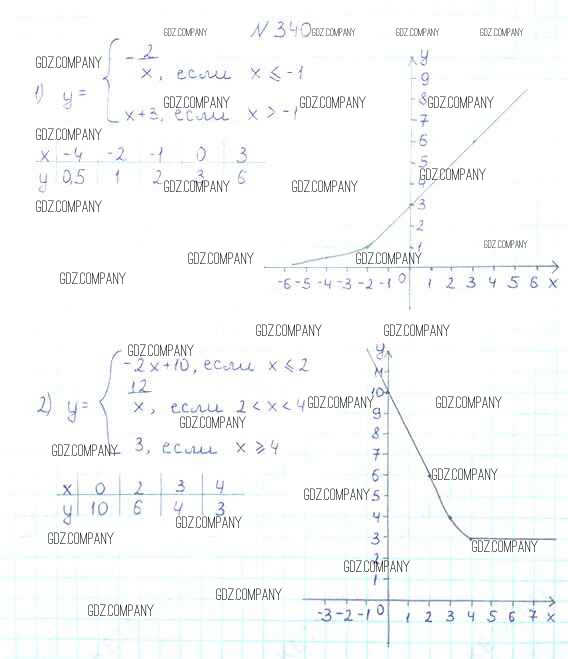 N 340
GDZ.COMPANY GDZ.COMPANY GDZ.COMPANY GDZ.COMPANY
GDZ.COMPANY
1) y = { -2/x, если x ≤ -1
x+3, если x > -1
GDZ.COMPANY GDZ.COMPANY GDZ.COMPANY
GDZ.COMPANY
x -4 -2 -1 0 3
y 0,5 1 2 3 6
GDZ.COMPANY GDZ.COMPANY GDZ.COMPANY
GDZ.COMPANY
y
9
8
7
6
5
4
3
2
1
-6 -5 -4 -3 -2 -1 0 1 2 3 4 5 6 x
GDZ.COMPANY GDZ.COMPANY GDZ.COMPANY
GDZ.COMPANY
GDZ.COMPANY GDZ.COMPANY
GDZ.COMPANY
2) y = { -2x+10, если x ≤ 2
12/x, если 2 < x < 4
3, если x ≥ 4
GDZ.COMPANY GDZ.COMPANY
GDZ.COMPANY
x 0 2 3 4
y 10 6 4 3
GDZ.COMPANY GDZ.COMPANY
GDZ.COMPANY
GDZ.COMPANY GDZ.COMPANY
y
11
10
9
8
7
6
5
4
3
2
1
-3 -2 -1 0 1 2 3 4 5 6 7 x
GDZ.COMPANY
GDZ.COMPANY
GDZ.COMPANY